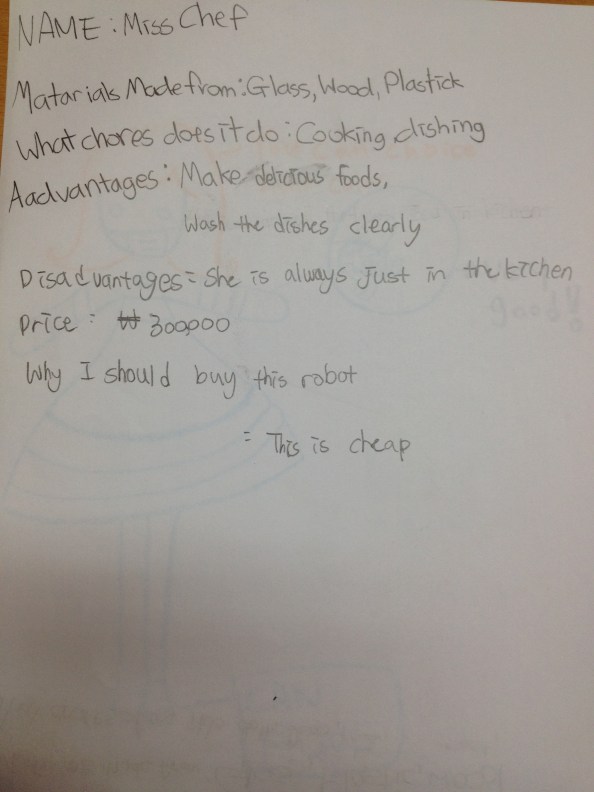 NAME : Miss Chef
Matarials Made from : Glass, Wood, Plastick
What chores does it do : Cooking, dishing
Aadvantages : Make delicious foods,
Wash the dishes clearly
Disadvantages = She is always just in the kitchen
Price : ₩ 300,000
Why I should buy this robot
= This is cheap